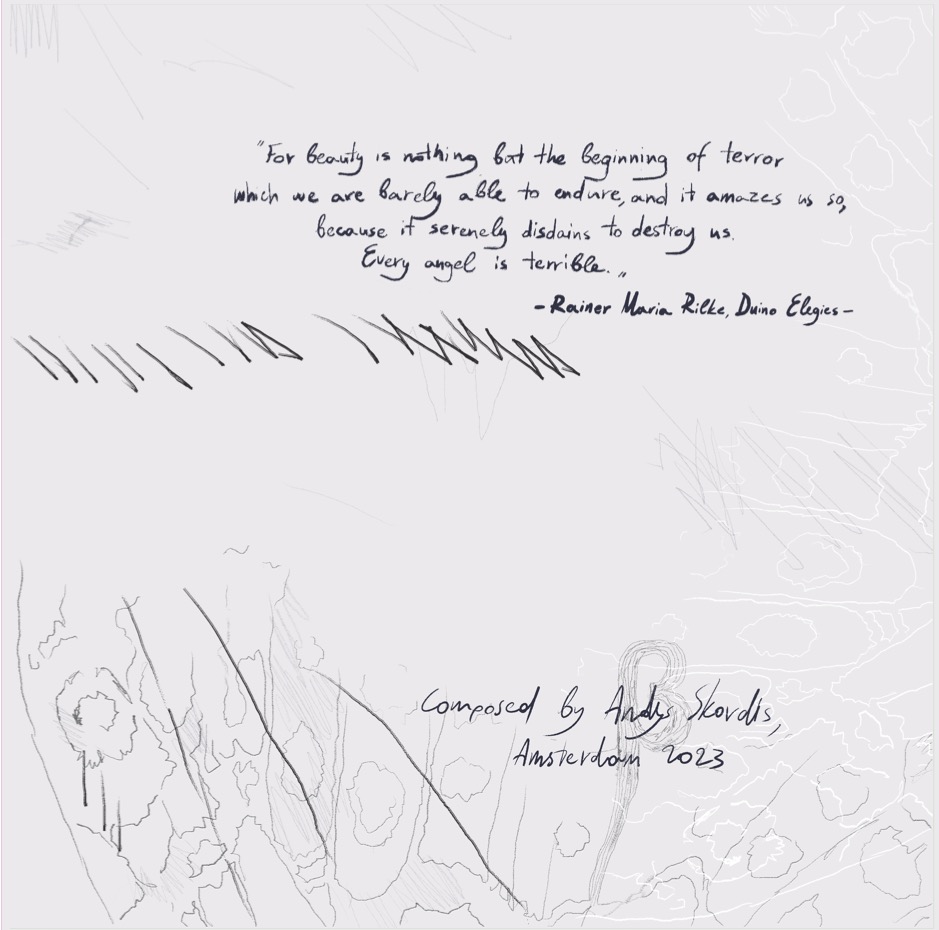 "For beauty is nothing but the beginning of terror
which we are barely able to endure, and it amazes us so,
because it serenely disdains to destroy us.
Every angel is terrible.„
-Rainer Maria Rilke, Duino Elegies-
Composed by Andys Skordis,
Amsterdam 2023